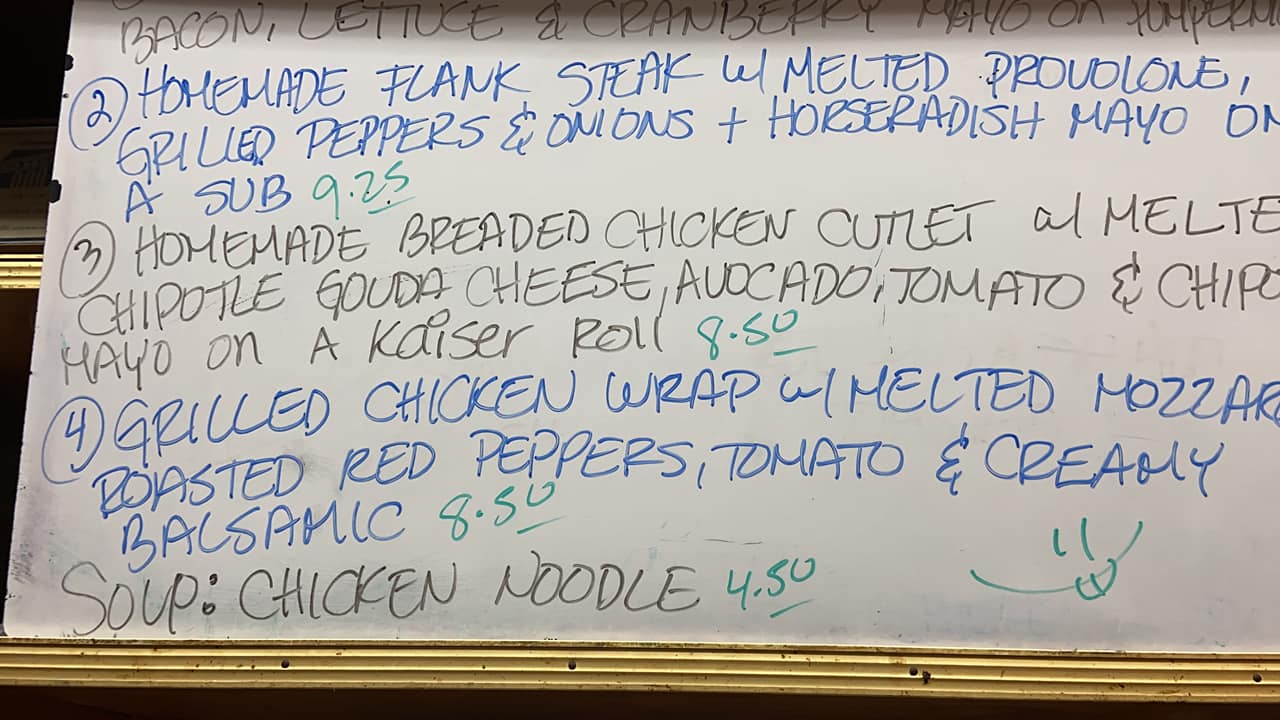 BACON, LETTUCE & CRANBERRY MAYO ON PUMPERN
② HOMEMADE FLANK STEAK w/ MELTED PROVOLONE,
GRILLED PEPPERS & ONIONS + HORSERADISH MAYO ON
A SUB 9.25
③ HOMEMADE BREADED CHICKEN CUTLET w/ MELTE
CHIPOTLE GOUDA CHEESE, AVOCADO, TOMATO & CHIPO
MAYO on A Kaiser Roll 8.50
④ GRILLED CHICKEN WRAP w/ MELTED MOZZAR
ROASTED RED PEPPERS, TOMATO & CREAMY
BALSAMIC 8.50
SOUP: CHICKEN NOODLE 4.50